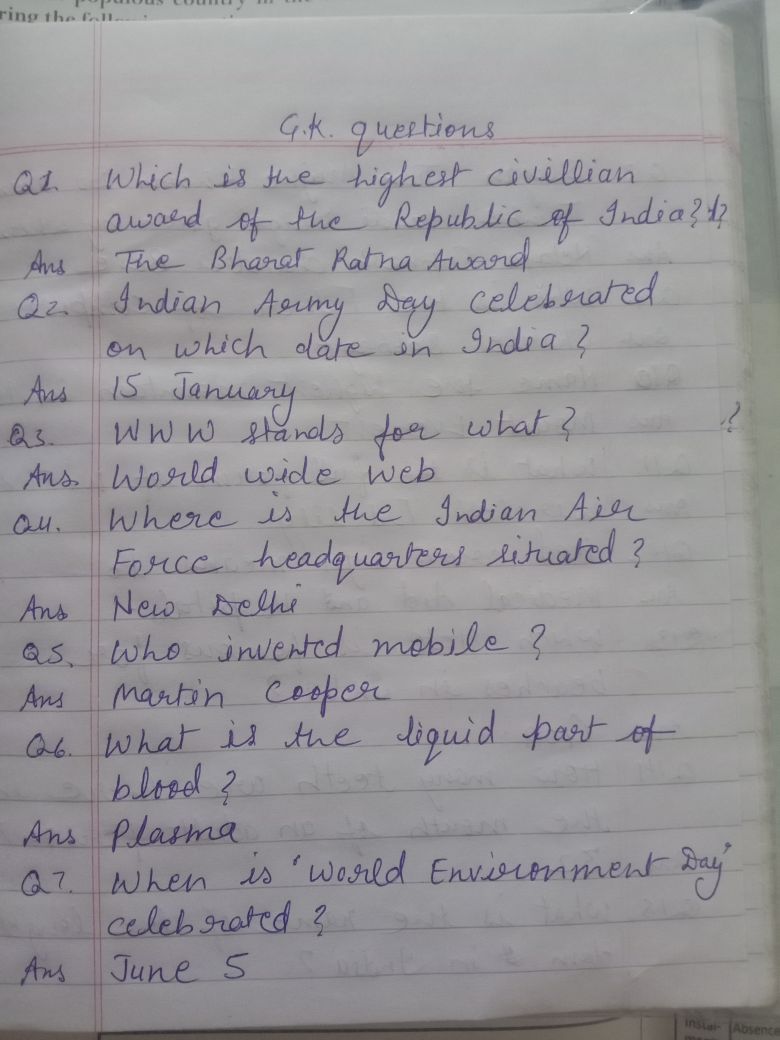 populous country in the
ring the
G.K. questions
Q1. Which is the highest civillian
award of the Republic of India?
Ans The Bharat Ratna Award
Q2. Indian Army Day celebrated
on which date in India?
Ans 15 January
Q3. WWW stands for what? ?
Ans. World wide web
Q4. Where is the Indian Air
Force headquarters situated?
Ans New Delhi
Q5. Who invented mobile?
Ans Martin Cooper
Q6. What is the liquid part of
blood?
Ans Plasma
Q7. When is 'World Environment Day'
celebrated?
Ans June 5
Instal- Absence